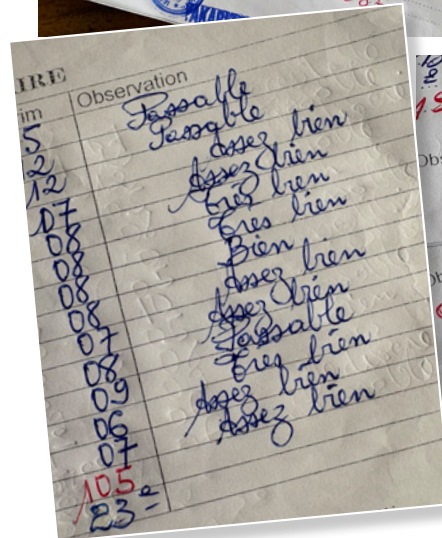 IRE
im Observation
5 Passable
2 Passable
12 assez bien
07 Assez bien
08 Tres bien
08 Tres bien
08 Bien
08 Assez bien
07 Assez bien
08 Passable
09 Tres bien
06 Assez bien
07 Assez bien
105
23e